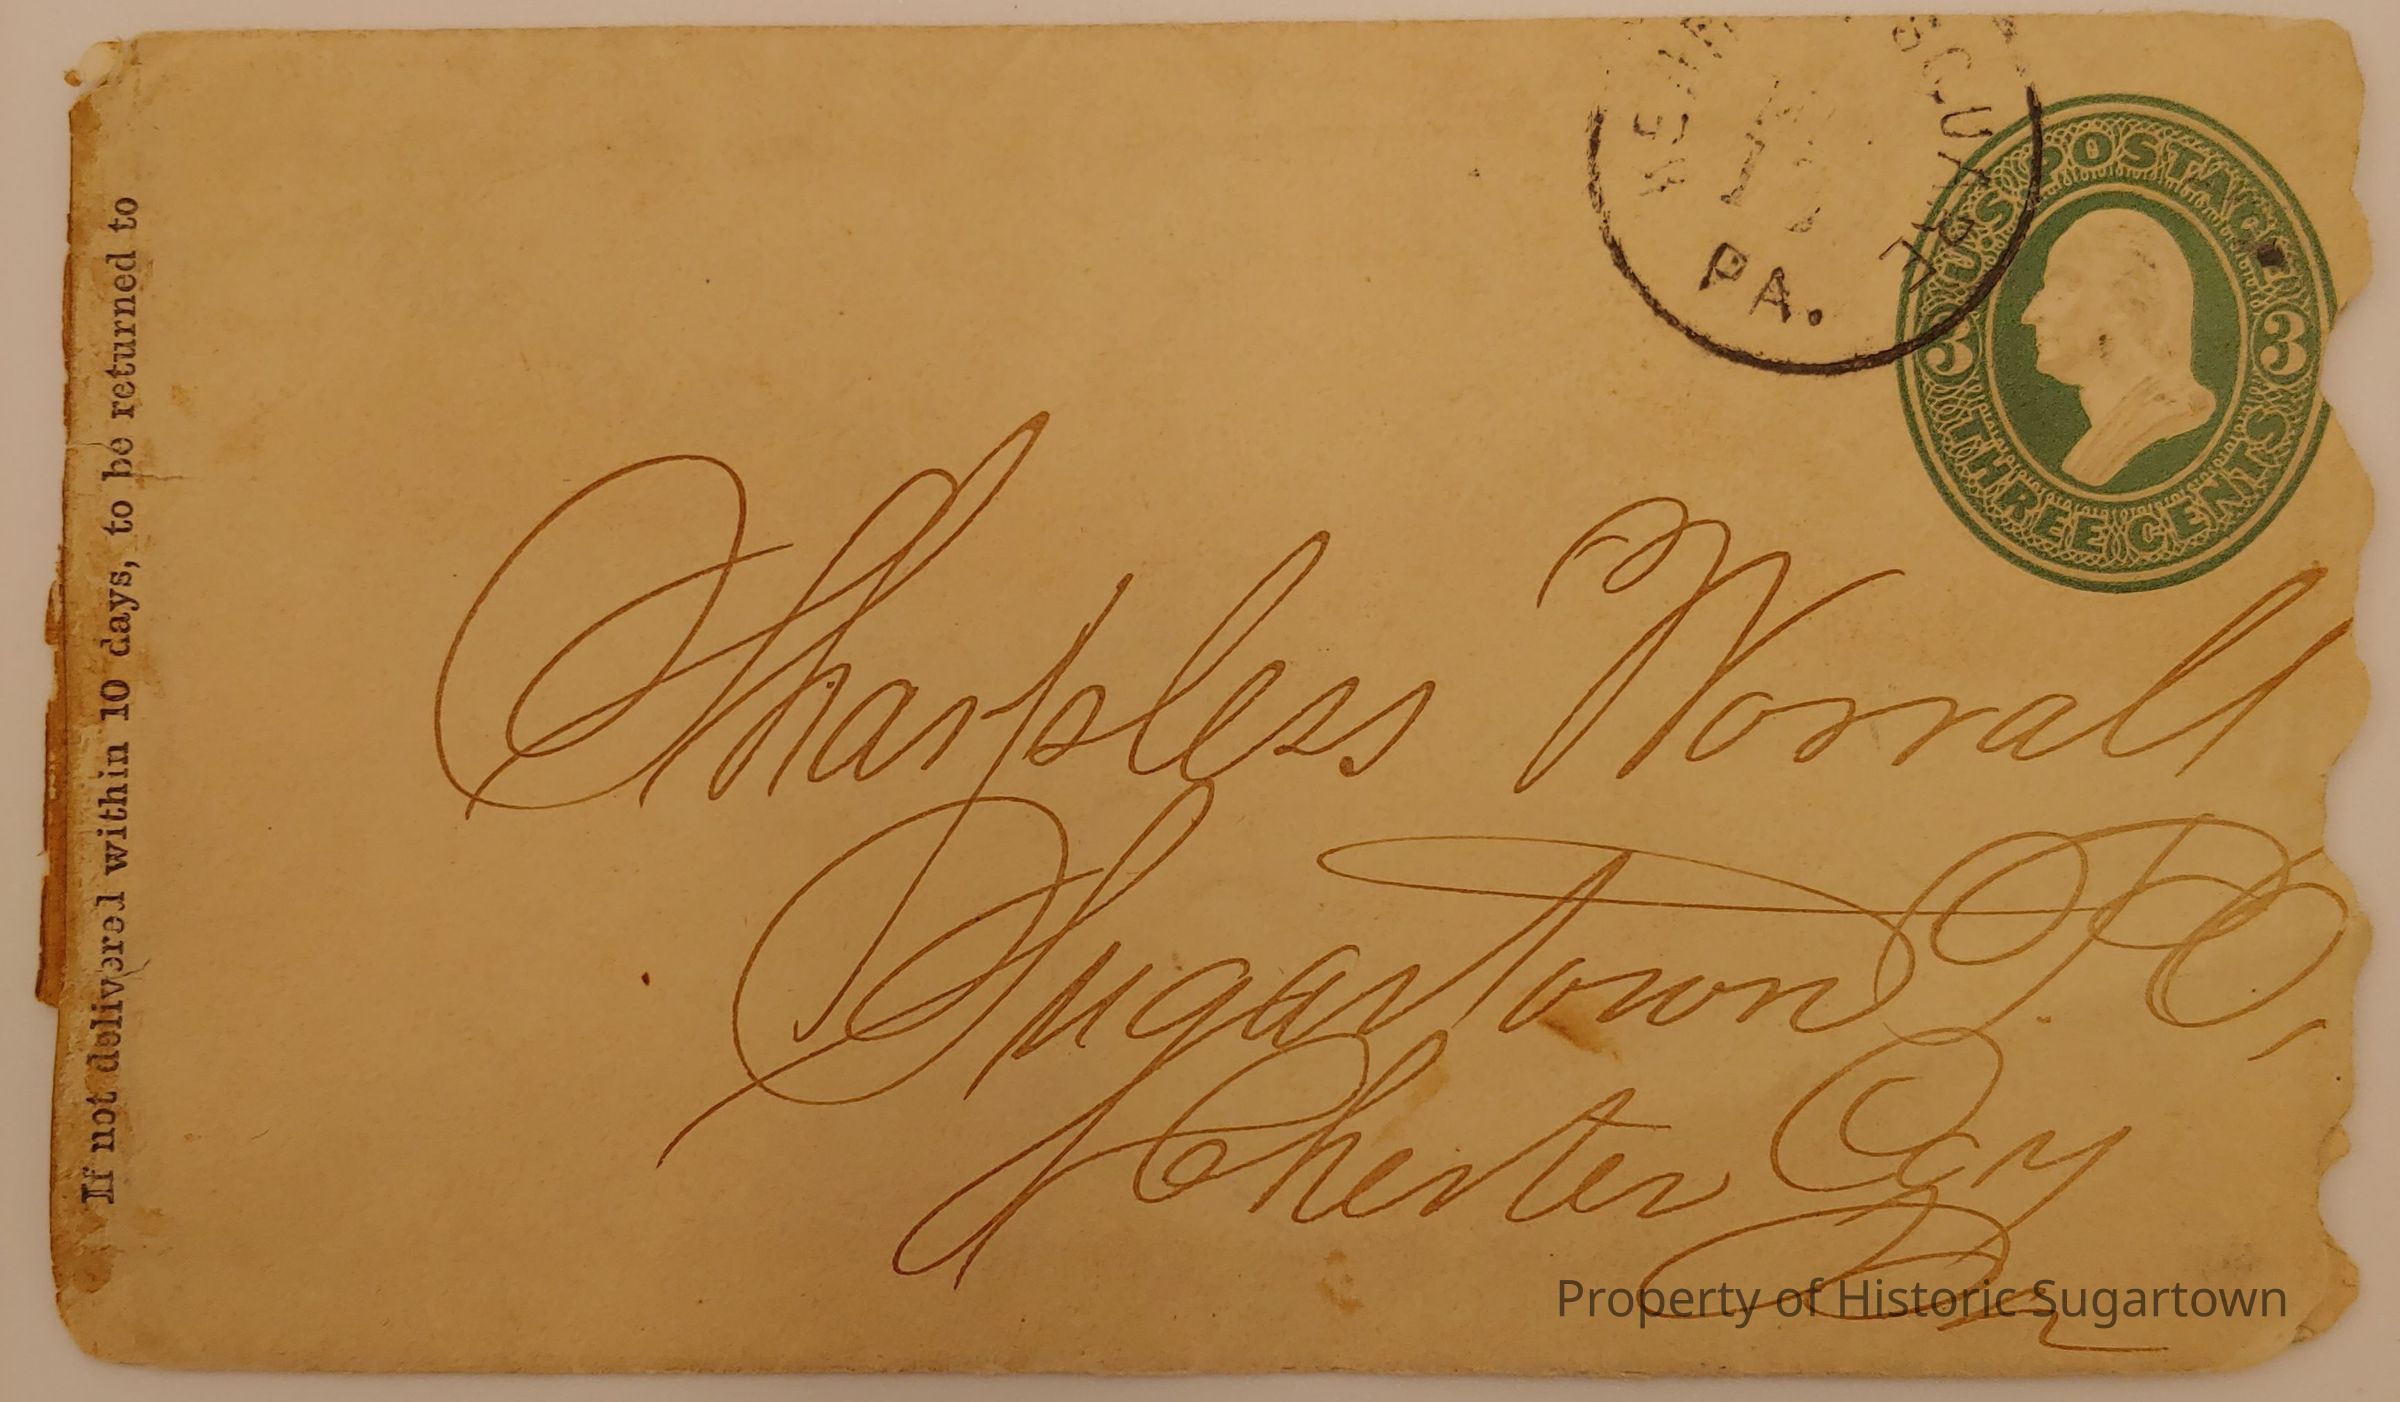 If not delivered within 10 days, to be returned to
SQUARE
PA.
U.S. POSTAGE
3 3
THREE CENTS
Sharpless Worrall
Sugartown P.O,
Chester Coy
Pa
Property of Historic Sugartown